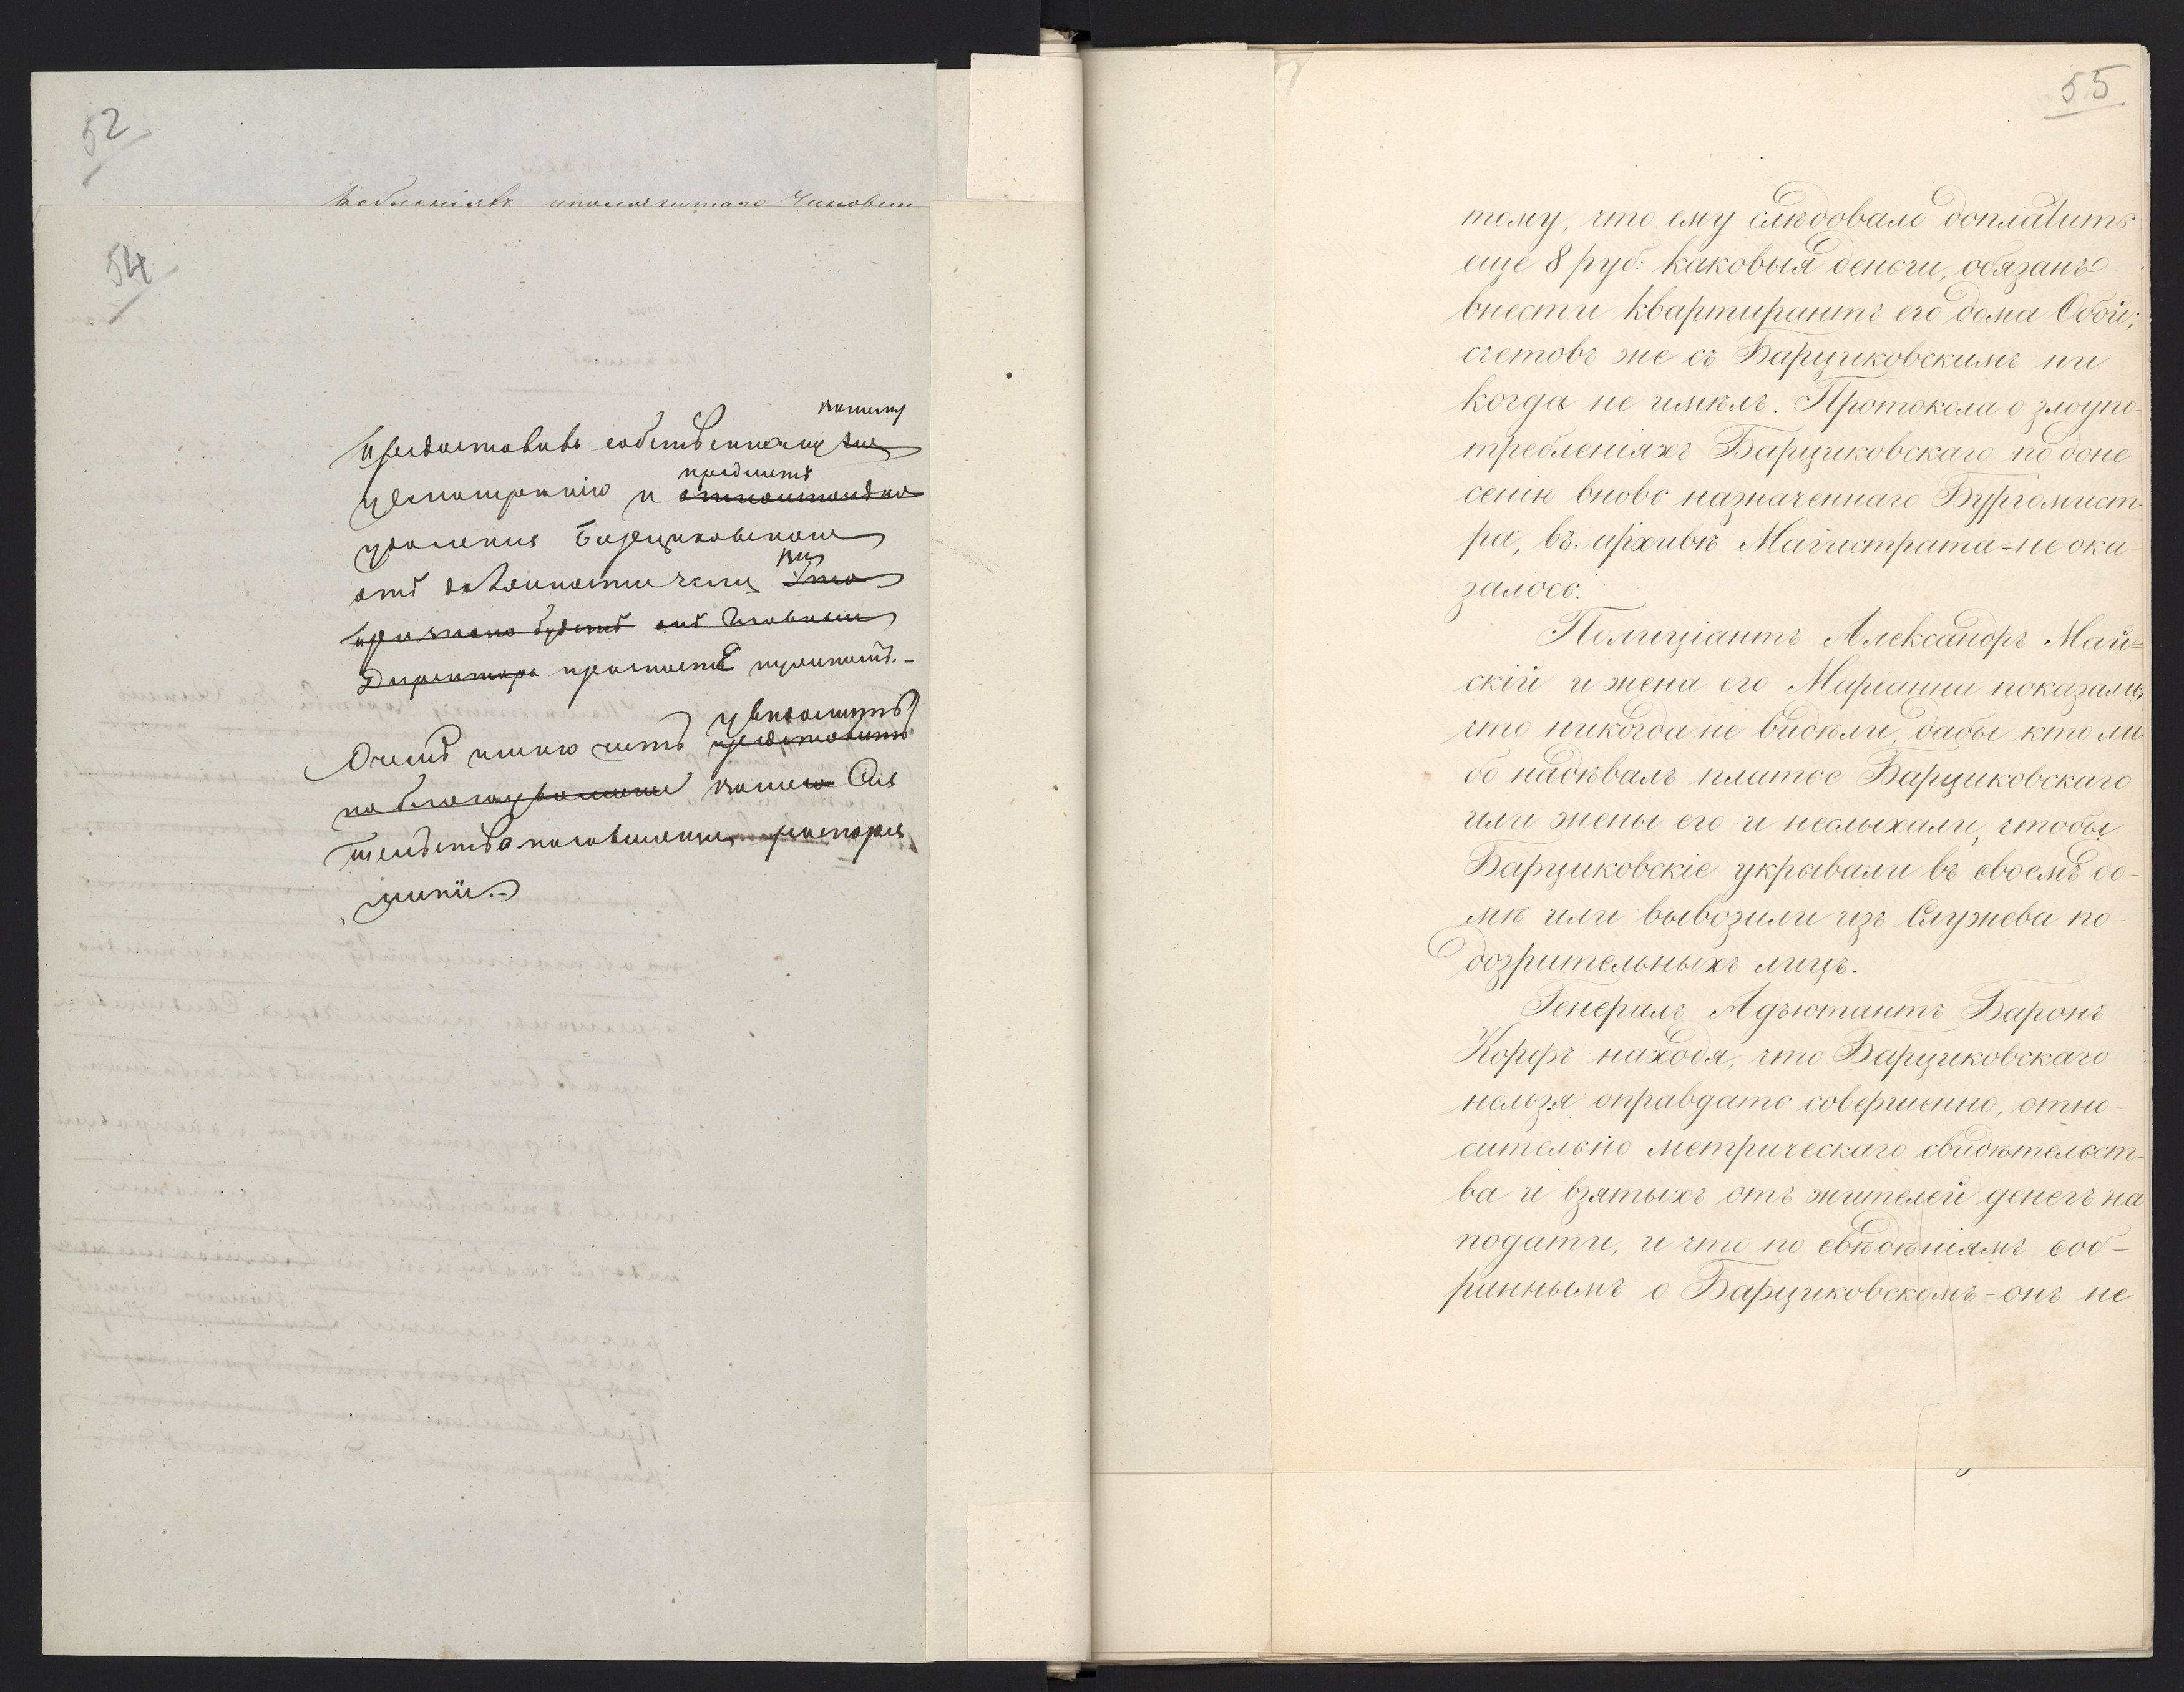 52
54
вашему
Предоставивъ собственному
усмотрѣнію и предметъ
удаленія Барциковскаго
отъ должности
признано будетъ
Директоръ
Очемъ имѣю честь увѣдомить
представить
на благоусмотрѣніе вашего Сія
тельства
55
тому, что ему слѣдовало доплатить
еще 8 руб: каковыя деньги, обязанъ
внести квартирантъ его дома Обой;
счетовъ же съ Барциковскимъ ни
когда не имѣлъ. Протокола о злоупо-
требленіяхъ Барциковскаго по доне
сенію вновь назначеннаго Бургомист-
ра, въ архивѣ Магистрата - не ока
залось.
Полиціантъ Александръ Май=
скій и жена его Маріанна показали,
что никогда не видѣли, дабы кто ли
бо надѣвалъ платье Барциковскаго
или жены его и неслыхали, чтобы
Барциковскіе укрывали въ своемъ до-
мѣ или вывозили изъ Служева по-
дозрительныхъ лицъ.
Генералъ Адъютантъ Баронъ
Корфъ находя, что Барциковскаго
нельзя оправдать совершенно, отно-
сительно метрическаго свидѣтельст-
ва и взятыхъ отъ жителей денегъ на
подати, и что по свѣдѣніямъ соб-
раннымъ о Барциковскомъ - онъ не